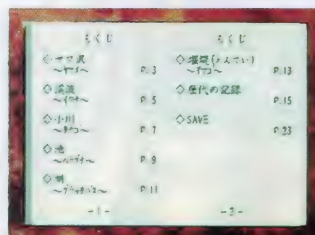 もくじ
◇サワ沢
～ヤマメ～ P.3
◇渓流
～イワナ～ P.5
◇小川
～タナゴ～ P.7
◇池
～ヘラブナ～ P.9
◇湖
～ブラックバス～ P.11
-1-
もくじ
◇堰堤(えんてい)
P.13
◇歴代の記録
P.15
◇SAVE
P.23
-2-